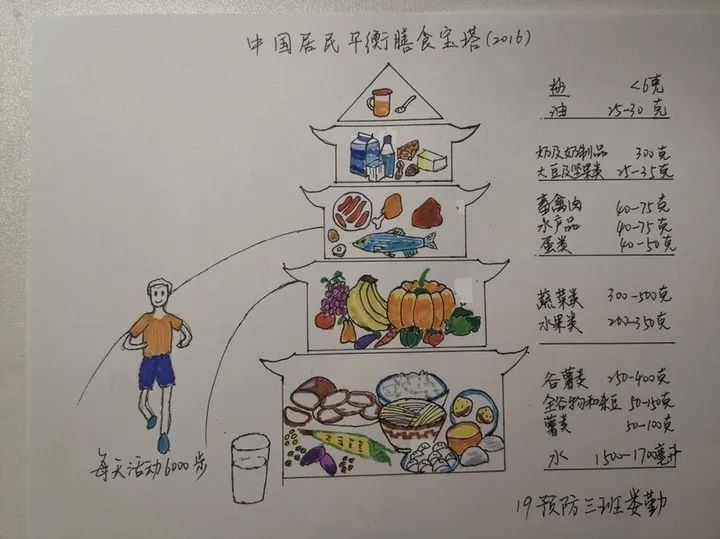 中国居民平衡膳食宝塔(2016)
盐 <6克
油 25-30克
奶及奶制品 300克
大豆及坚果类 25-35克
畜禽肉 40-75克
水产品 40-75克
蛋类 40-50克
蔬菜类 300-500克
水果类 200-350克
谷薯类 250-400克
全谷物和杂豆 50-150克
薯类 50-100克
水 1500-1700毫升
每天活动6000步
19预防三班娄勤